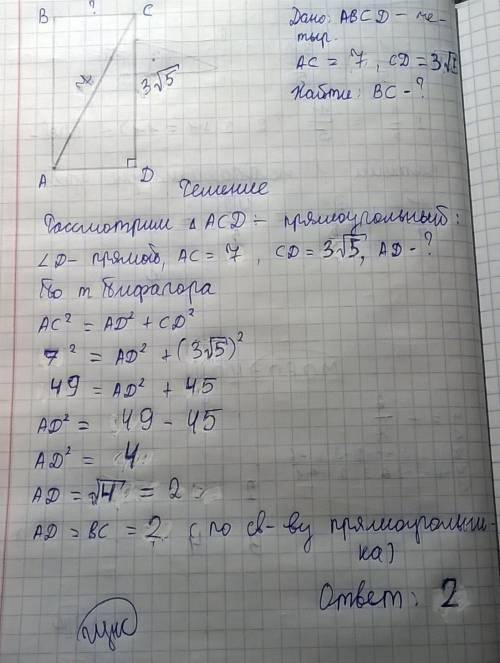 B ? C
Дано: ABCD - че-
тыр.
AC = 7, CD = 3√5
Найти: BC - ?
7
3√5
A D
Решение
Рассмотрим △ ACD - прямоугольный:
∠D - прямой, AC = 7, CD = 3√5, AD - ?
По т Пифагора
AC² = AD² + CD²
7² = AD² + (3√5)²
49 = AD² + 45
AD² = 49 - 45
AD² = 4
AD = √4 = 2
AD = BC = 2 (по св-ву прямоугольни-
ка)
Ответ: 2